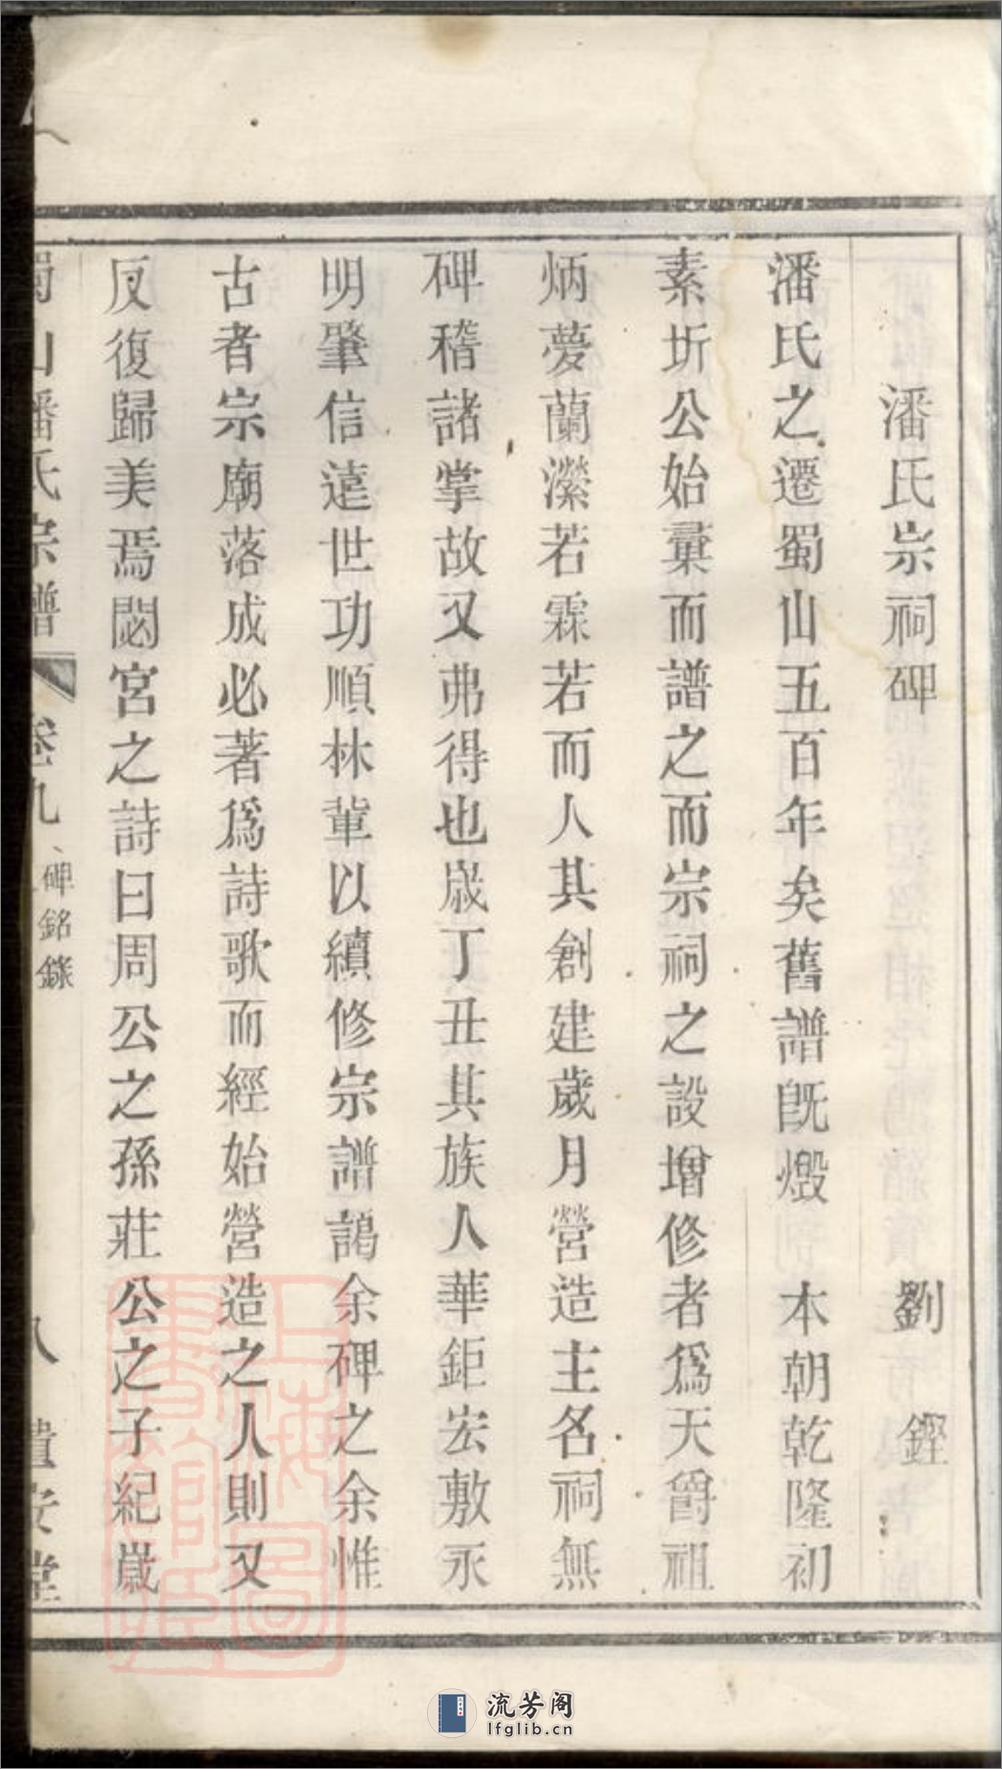 潘氏宗祠碑
劉　鏗
潘氏之遷蜀山五百年矣舊譜旣燬　本朝乾隆初
素圻公始彙而譜之而宗祠之設增修者爲天爵祖
炳夢蘭瀠若霖若而人其創建歲月營造主名祠無
碑稽諸掌故又弗得也歲丁丑其族人華鉅宏敷永
明肇信遠世功順林輩以續修宗譜謁余碑之余惟
古者宗廟落成必著爲詩歌而經始營造之人則又
反復歸美焉閟宮之詩曰周公之孫莊公之子紀歲
蜀山潘氏宗譜
卷九
碑銘錄
八
遺安堂
上海圖書館藏
流芳阁
lfglib.cn